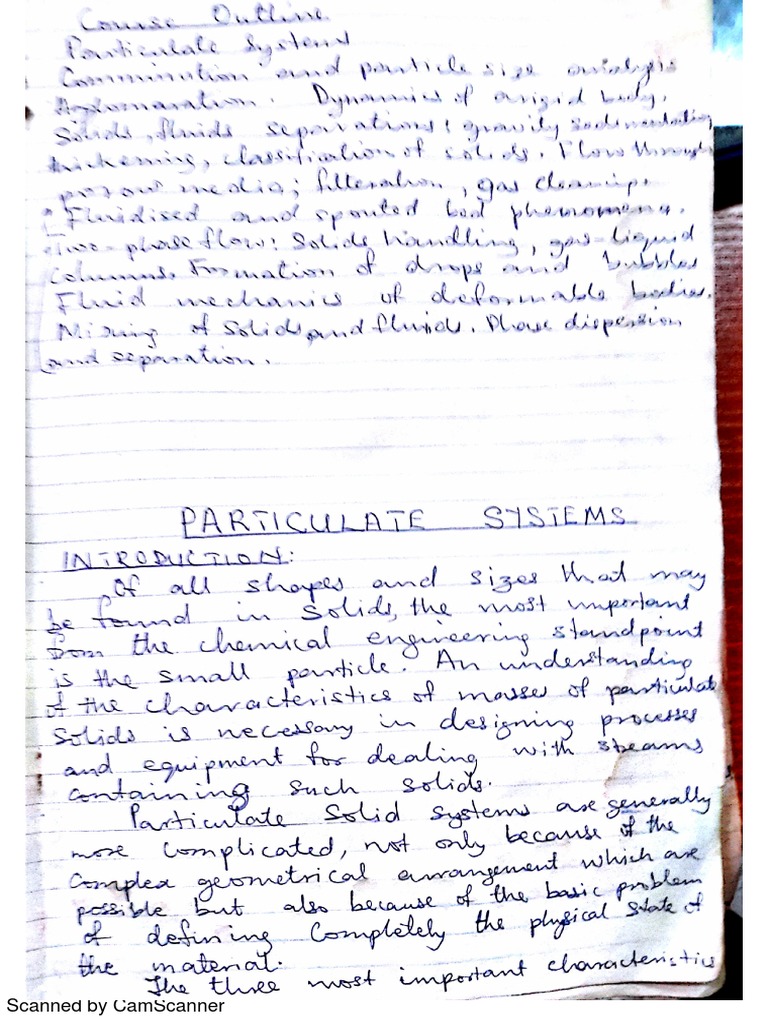 Course Outline
Particulate Systems
Comminution and particle size analysis
Agglomaration. Dynamics of a rigid body.
Solids, fluids separations: gravity sedimentation,
thickening, classification of solids. Flow through
porous media; filteration, gas cleanup.
Fluidised and spouted bed phenomena.
Two-phase flow: Solids handling, gas-liquid
columns. Formation of drops and bubbles
Fluid mechanics of deformable bodies.
Mixing of solids and fluids. Phase dispersion
and separation.
PARTICULATE SYSTEMS
INTRODUCTION:
Of all shapes and sizes that may
be found in solids, the most important
from the chemical engineering standpoint
is the small particle. An understanding
of the characteristics of masses of particulate
Solids is necessary in designing processes
and equipment for dealing with streams
containing such solids.
Particulate Solid systems are generally
more complicated, not only because of the
complex geometrical arrangement which are
possible but also because of the basic problem
of defining completely the physical state of
the material.
The three most important characteristics
Scanned by CamScanner